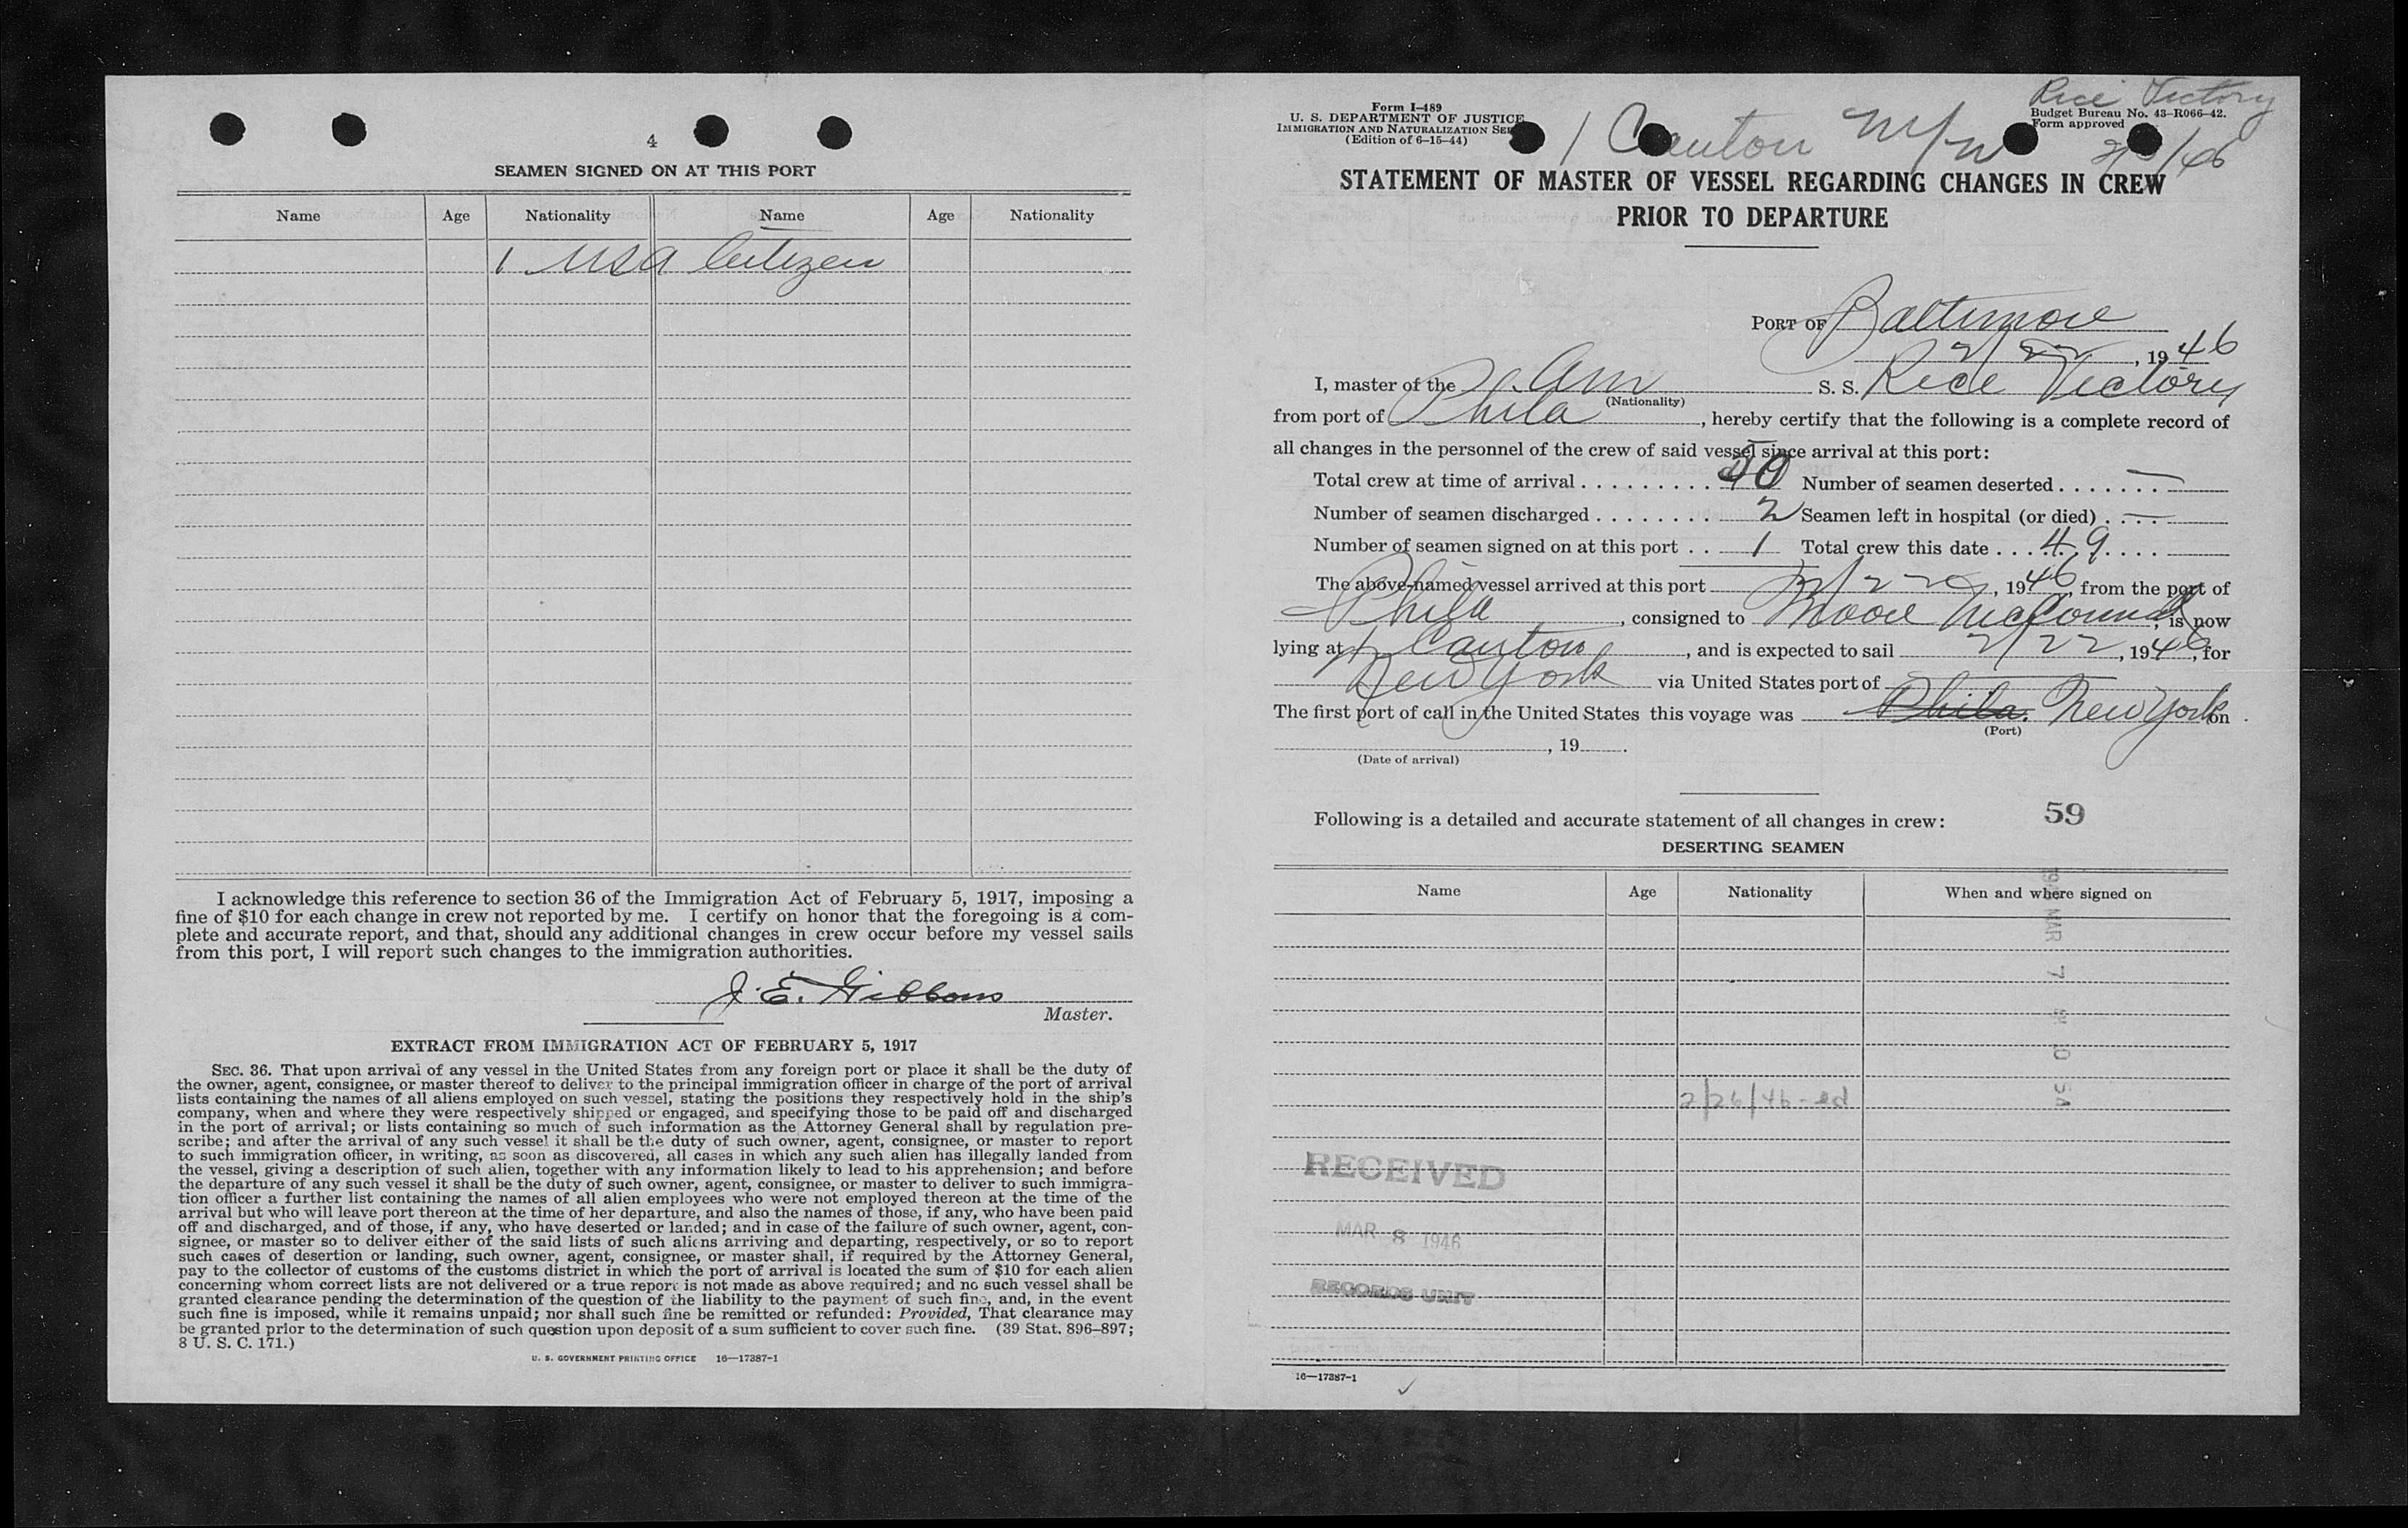 4
SEAMEN SIGNED ON AT THIS PORT
Name Age Nationality Name Age Nationality
1 USA Citizen
I acknowledge this reference to section 36 of the Immigration Act of February 5, 1917, imposing a
fine of $10 for each change in crew not reported by me. I certify on honor that the foregoing is a com-
plete and accurate report, and that, should any additional changes in crew occur before my vessel sails
from this port, I will report such changes to the immigration authorities.
J. E. Gibbons
Master.
EXTRACT FROM IMMIGRATION ACT OF FEBRUARY 5, 1917
SEC. 36. That upon arrival of any vessel in the United States from any foreign port or place it shall be the duty of
the owner, agent, consignee, or master thereof to deliver to the principal immigration officer in charge of the port of arrival
lists containing the names of all aliens employed on such vessel, stating the positions they respectively hold in the ship's
company, when and where they were respectively shipped or engaged, and specifying those to be paid off and discharged
in the port of arrival; or lists containing so much of such information as the Attorney General shall by regulation pre-
scribe; and after the arrival of any such vessel it shall be the duty of such owner, agent, consignee, or master to report
to such immigration officer, in writing, as soon as discovered, all cases in which any such alien has illegally landed from
the vessel, giving a description of such alien, together with any information likely to lead to his apprehension; and before
the departure of any such vessel it shall be the duty of such owner, agent, consignee, or master to deliver to such immigra-
tion officer a further list containing the names of all alien employees who were not employed thereon at the time of the
arrival but who will leave port thereon at the time of her departure, and also the names of those, if any, who have been paid
off and discharged, and of those, if any, who have deserted or landed; and in case of the failure of such owner, agent, con-
signee, or master so to deliver either of the said lists of such aliens arriving and departing, respectively, or so to report
such cases of desertion or landing, such owner, agent, consignee, or master shall, if required by the Attorney General,
pay to the collector of customs of the customs district in which the port of arrival is located the sum of $10 for each alien
concerning whom correct lists are not delivered or a true report is not made as above required; and no such vessel shall be
granted clearance pending the determination of the question of the liability to the payment of such fine, and, in the event
such fine is imposed, while it remains unpaid; nor shall such fine be remitted or refunded: Provided, That clearance may
be granted prior to the determination of such question upon deposit of a sum sufficient to cover such fine. (39 Stat. 896-897;
8 U. S. C. 171.)
U. S. GOVERNMENT PRINTING OFFICE 16—17387-1
Rice Victory
Form I-489
U. S. DEPARTMENT OF JUSTICE
IMMIGRATION AND NATURALIZATION SER
(Edition of 6-15-44)
Budget Bureau No. 43-R066-42.
Form approved
1 Canton
STATEMENT OF MASTER OF VESSEL REGARDING CHANGES IN CREW
PRIOR TO DEPARTURE
PORT OF Baltimore
2/22, 1946
I, master of the Am S. S. Rice Victory
(Nationality)
from port of Phila, hereby certify that the following is a complete record of
all changes in the personnel of the crew of said vessel since arrival at this port:
Total crew at time of arrival . . . . . . . . . 50 Number of seamen deserted . . . . . . . —
Number of seamen discharged . . . . . . . . 2 Seamen left in hospital (or died) . . . . —
Number of seamen signed on at this port . . 1 Total crew this date . . . 49 . . . .
The above-named vessel arrived at this port 2/22, 1946, from the port of
Phila, consigned to Moore McCormack, is now
lying at 1 Canton, and is expected to sail 2/22, 1946, for
New York via United States port of
The first port of call in the United States this voyage was Phila. New York on
(Port)
, 19 .
(Date of arrival)
59
Following is a detailed and accurate statement of all changes in crew:
DESERTING SEAMEN
Name Age Nationality When and where signed on
MAR 7
2/26/46-ed
RECEIVED
MAR 8 1946
RECORDS UNIT
16—17387-1